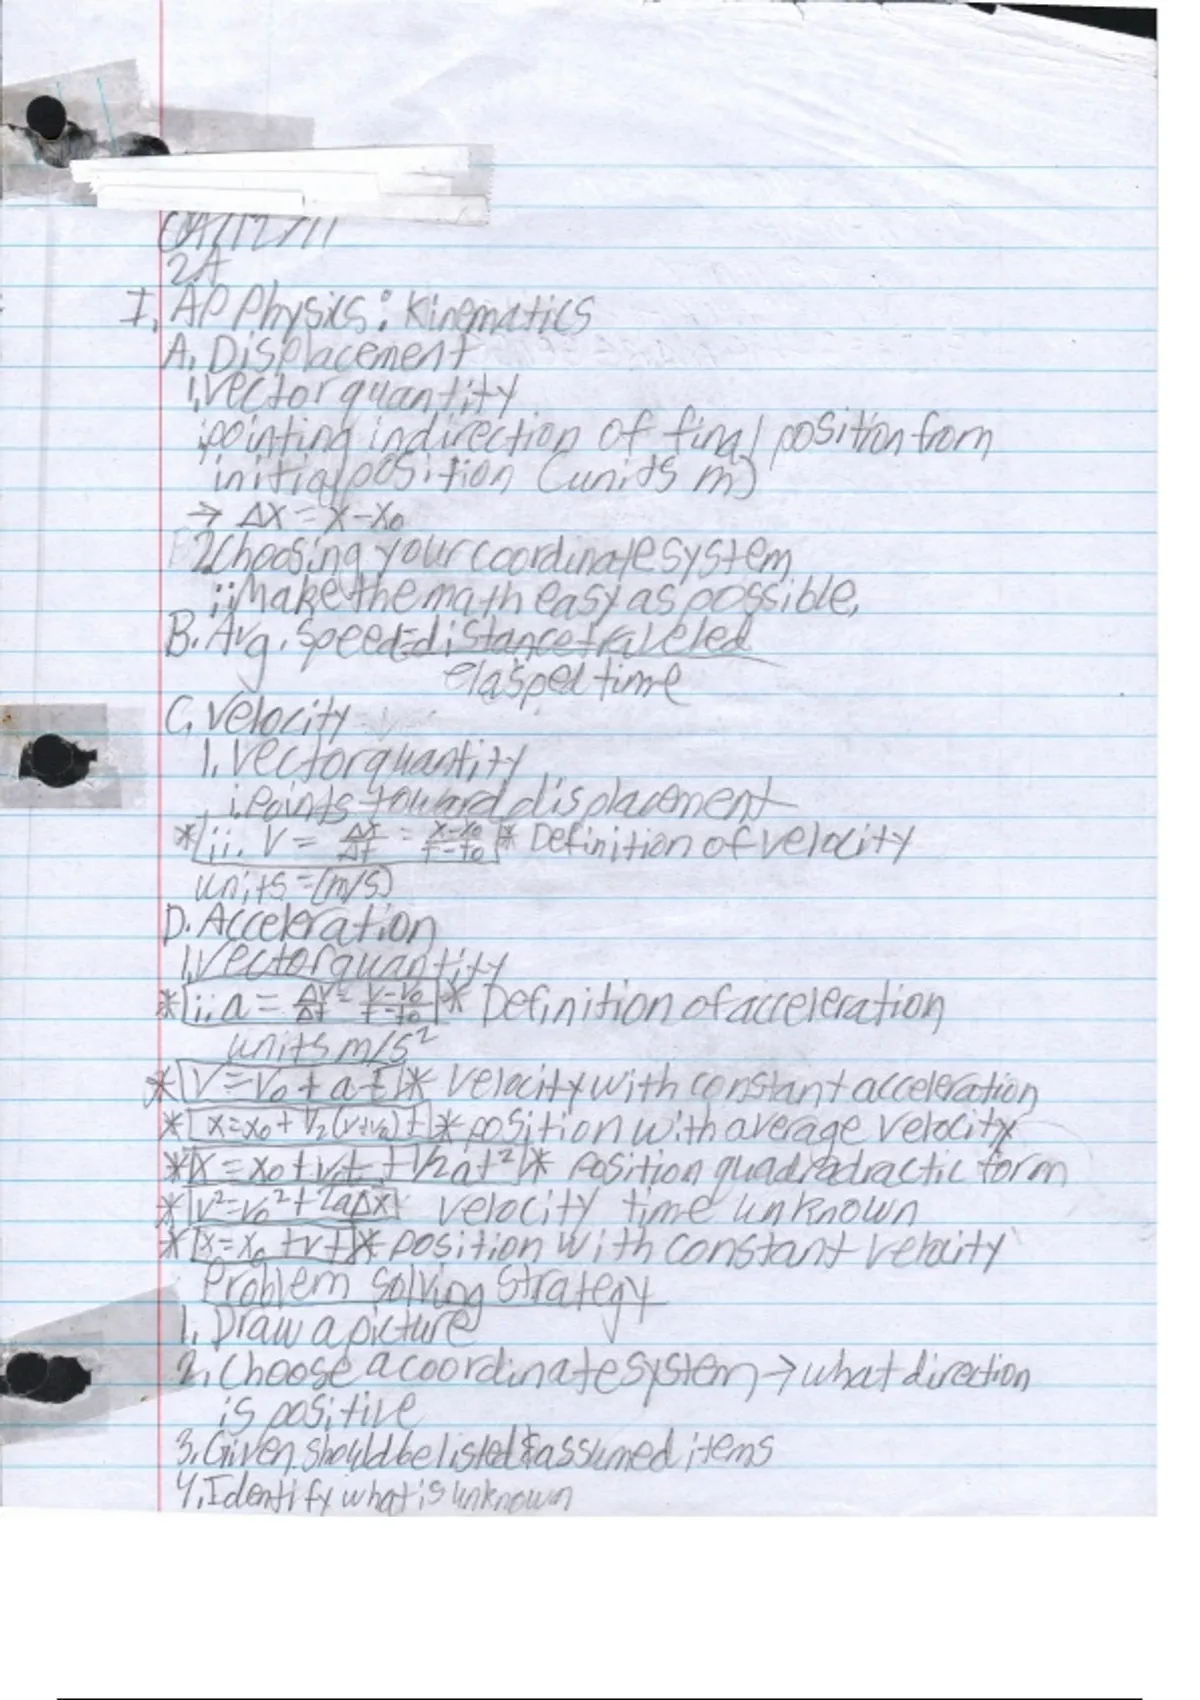 2A
I. AP Physics: Kinematics
A. Displacement
1. Vector quantity
i. pointing in direction of final position from
initial position (units m)
→ Δx = x-x₀
2. Choosing your coordinate system
ii. Make the math easy as possible.
B. Avg. speed = distance traveled
elapsed time
C. Velocity
1. Vector quantity
i. Points toward displacement
* ii. V = Δx/Δt = x-x₀/t-t₀ * Definition of velocity
units = (m/s)
D. Acceleration
1. Vector quantity
* ii. a = Δv/Δt = v-v₀/t-t₀ * Definition of acceleration
units m/s²
* V = V₀ + at * velocity with constant acceleration
* x = x₀ + 1/2(v+v₀)t * position with average velocity
* x = x₀ + v₀t + 1/2at² * Position quadradractic form
* v² = v₀² + 2aΔx velocity time unknown
* x = x₀ + vt * position with constant velocity
Problem solving strategy
1. Draw a picture
2. Choose a coordinate system → what direction
is positive
3. Given should be listed & assumed items
4. Identify what is unknown